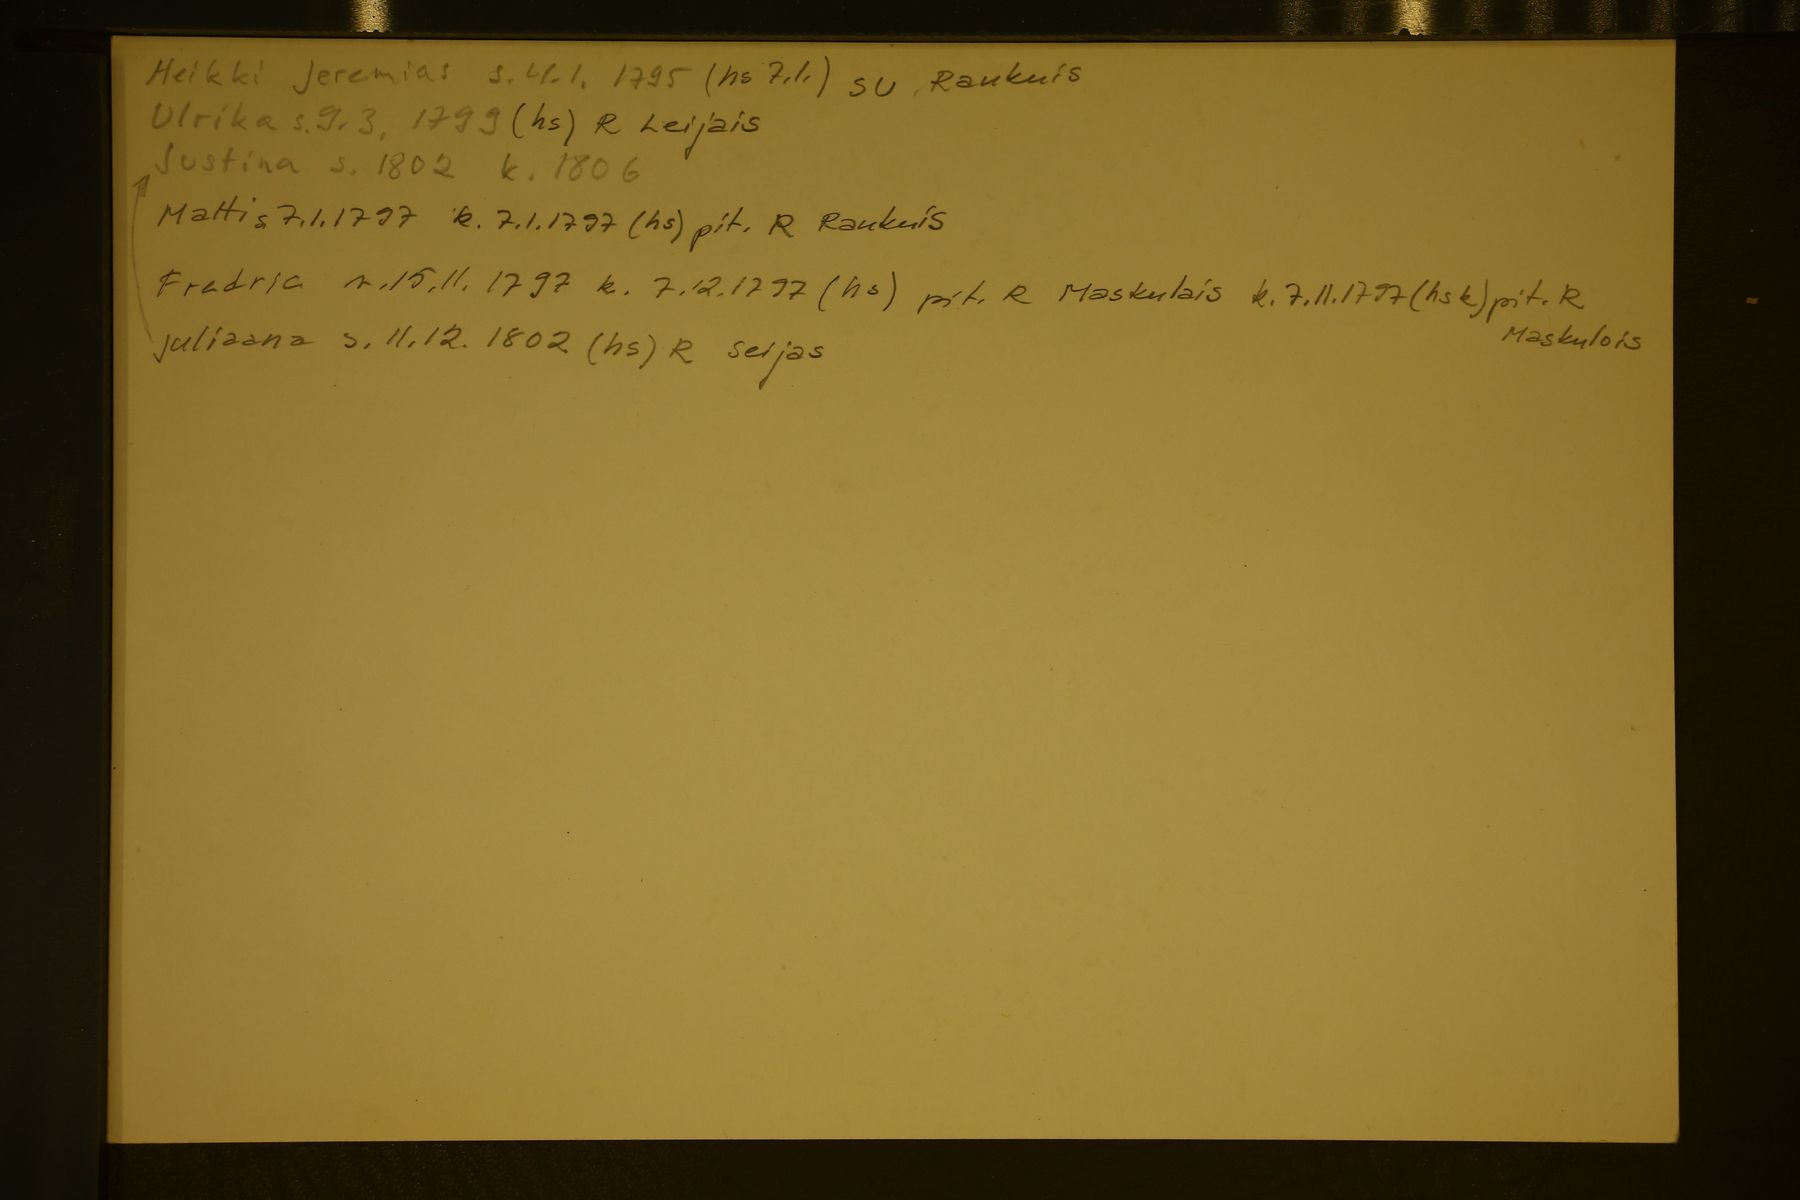 Heikki Jeremias s. 4.1. 1795 (hs 7.1.) SU Raukuis
Ulrika s. 9.3. 1799 (hs) R Leijais
Justina s. 1802 k. 1806
Matti s 7.1.1797 k. 7.1.1797 (hs) pit. R Raukuis
Fredria s. 15.11. 1797 k. 7.12.1797 (hs) pit. R Maskulais k. 7.11.1797 (hsk) pit. R
Maskulois
Juliaana s. 11.12. 1802 (hs) R Seijas